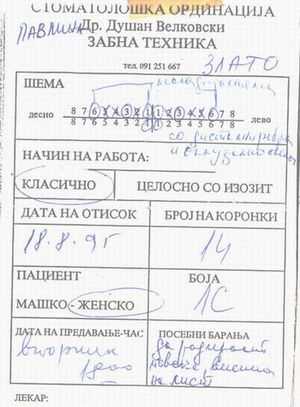 СТОМАТОЛОШКА ОРДИНАЦИЈА
Др. Душан Велковски
ЗАБНА ТЕХНИКА
тел. 091 251 667
ЗЛАТО
ШЕМА
десно 8 7 6 5 4 3 2 1 1 2 3 4 5 6 7 8 лево
8 7 6 5 4 3 2 1 1 2 3 4 5 6 7 8
со
НАЧИН НА РАБОТА:
КЛАСИЧНО ЦЕЛОСНО СО ИЗОЗИТ
ДАТА НА ОТИСОК БРОЈ НА КОРОНКИ
18.8.95 14
ПАЦИЕНТ БОЈА
МАШКО - ЖЕНСКО 1C
ДАТА НА ПРЕДАВАЊЕ-ЧАС ПОСЕБНИ БАРАЊА
вторник да
на лист
ЛЕКАР: